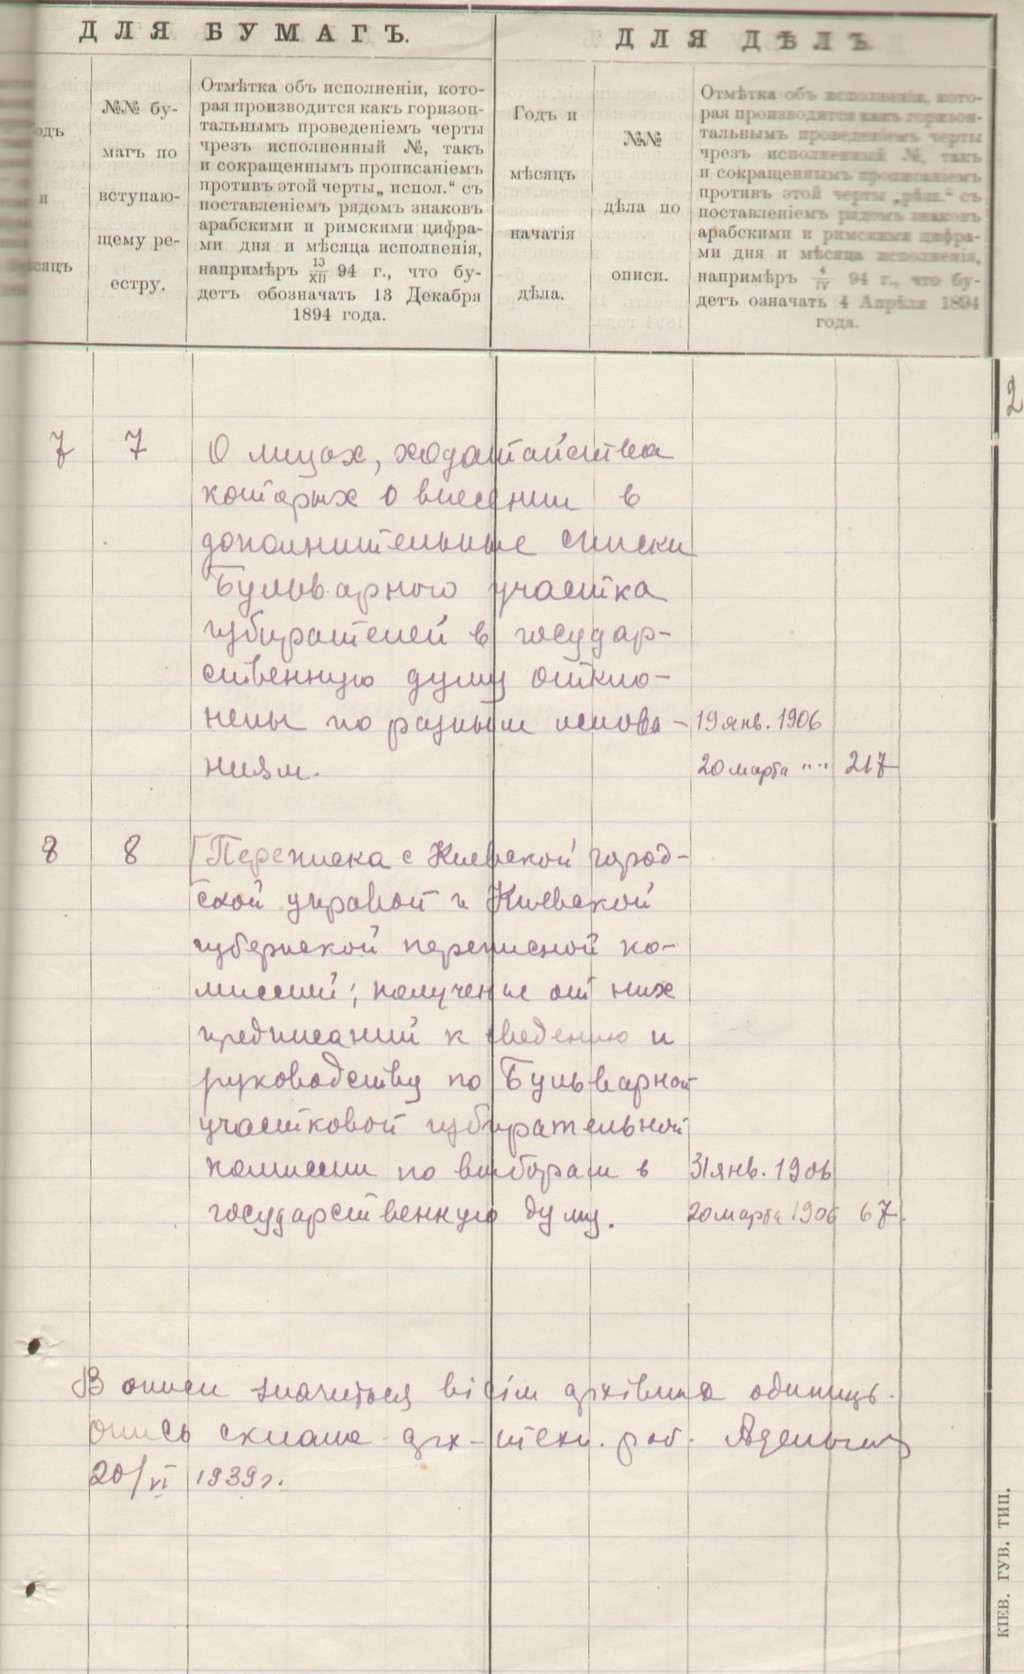 ДЛЯ БУМАГЪ.
одъ
и
сяцъ
№№ бу-
магъ по
вступаю-
щему ре-
естру.
Отмѣтка объ исполненіи, кото-
рая производится какъ горизон-
тальнымъ проведеніемъ черты
чрезъ исполненный №, такъ
и сокращеннымъ прописаніемъ
противъ этой черты „ испол.“ съ
поставленіемъ рядомъ знаковъ
арабскими и римскими цифра-
ми дня и мѣсяца исполненія,
напримѣръ 13/XII 94 г., что бу-
детъ обозначать 13 Декабря
1894 года.
ДЛЯ ДѢЛЪ
Годъ и
мѣсяцъ
начатія
дѣла.
№№
дѣла по
описи.
Отмѣтка объ исполненіи, кото-
рая производится какъ горизон-
тальнымъ проведеніемъ черты
чрезъ исполненный №, такъ
и сокращеннымъ прописаніемъ
противъ этой черты „рѣш.“ съ
поставленіемъ рядомъ знаковъ
арабскими и римскими цифра-
ми дня и мѣсяца исполненія,
напримѣръ 4/IV 94 г., что бу-
детъ означать 4 Апрѣля 1894
года.
2
7 7 О лицах, ходатайства
которых о внесении в
дополнительные списки
Бульварного участка
избирателей в государ-
ственную думу откло-
нены по разным основа- 19 янв. 1906
ниям. 20 марта "" 217
8 8 [Переписка с Киевской город-
ской управой и Киевской
губернской переписной ко-
миссией; получение от них
предписаний к сведению и
руководству по Бульварной
участковой избирательной
комиссии по выборам в 31 янв. 1906
государственную думу. 20 марта 1906 67
В описи значиться вісім архівних одиниць.
опись склала арх-техн. роб.
20/VI 1939 г.
КІЕВ. ГУВ. ТИП.